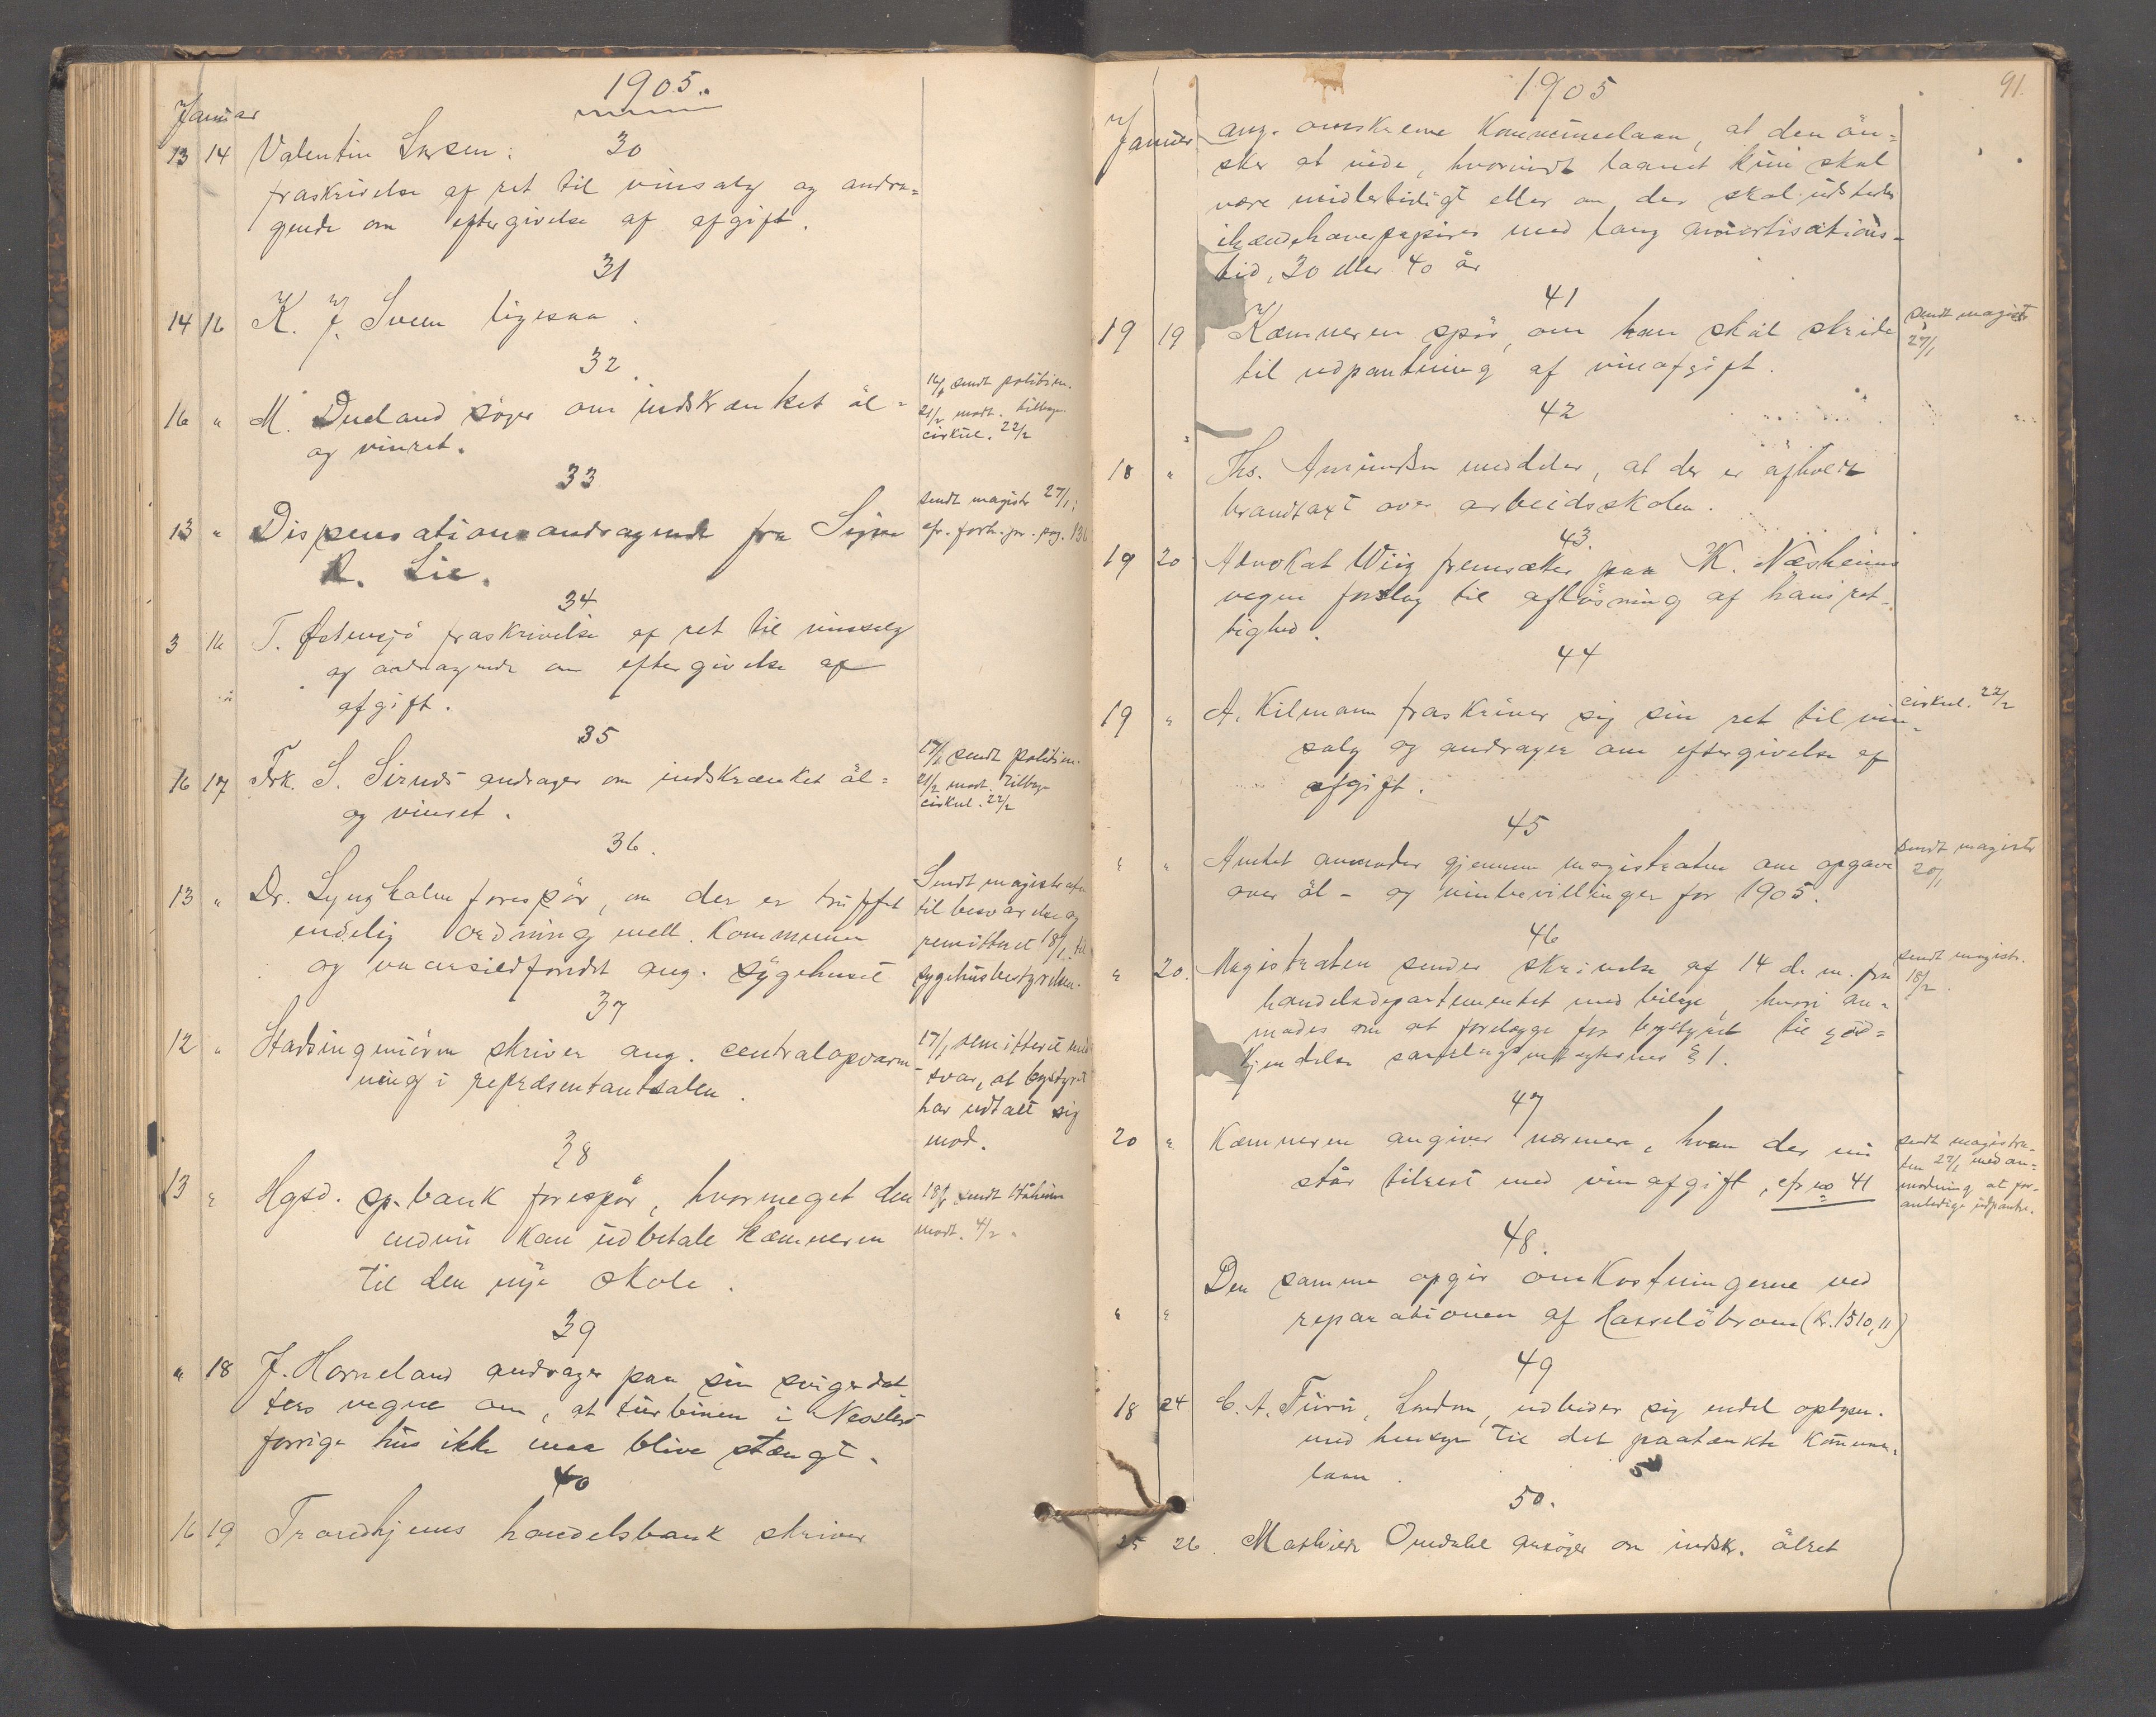 1905.
Januar
30
13 14 Valentin Larsen:
fraskrivelse af ret til vinsalg og andra=
gende om eftergivelse af afgift.
31
14 16 K. J. Sveen ligesaa.
32
16 " M. Dueland söger om indskrænket öl=
og vinret.
16/1 sendt politim.
21/2 modt. tilbage.
cirkul. 22/2
33
13 " Dispensationsandragende fra Signe
R. Lie.
sendt magistr 27/1;
cfr. forh. pr. pag. 136
34
3 16 T. Østensjö fraskrivelse af ret til vinsalg
og andragende om eftergivelse af
afgift.
35
16 17 Frk. S. andrager om indskrænket öl=
og vinret.
17/1 sendt politim.
21/2 modt. tilbage
cirkul. 22/2
36.
13 " Dr. Lyngholm forespör, om der er truffet
endelig ordning mell. Kommunen
og vaarsildfondet ang. sygehuset
Sendt magistraten
til besvarelse og
remitteret 18/1 til
sygehusbestyrelsen.
37
12 " Stadsingeniören skriver ang. centralopvarm-
ning i repræsentantsalen.
17/1 remitteret med
svar, at bystyret
har udtalt sig
mod.
38
13 " Hgsd. sp.bank forespör, hvormeget den
endnu kan udbetale kæmneren
til den nye skole.
18/1 sendt
modt. 4/2.
39
" 18 J. Horneland andrager paa sin svigerdat
ters vegne om, at turbinen i
forrige hus ikke maa blive stængt.
40
16 19 Trondhjems handelsbank skriver
1905
91.
Januar
ang. omskrevne Kommunelaan, at den ön-
sker at vide, hvorvidt laanet kun skal
være midlertidigt eller om der skal udstedes
ihændehaverpapirer med lang amortisations-
tid, 30 eller 40 år
41
19 19 Kæmneren spör, om han skal skride
til udpantning af vinafgift.
sendt magistr
27/1
42
18 " Ths. Amundsen meddeler, at der er afholdt
brandtaxt over arbeidsskolen.
43.
19 20 Advokat Wiig fremsætter paa K. Næsheims
vegne forslag til aflösning af hans ret-
tighed.
44
19 " A. Kilmann fraskriver sig sin ret til vin-
salg og andrager om eftergivelse af
afgift.
cirkul. 22/2
45
" " Amtet anmoder gjennem magistraten om opgave
over öl- og vinbevillinger for 1905.
sendt magistr
20/1
46
" 20. Magistraten sender skrivelse af 14 d. m. fra
handelsdepartementet med bilage, hvori an-
modes om at forelægge for bystyret til god=
kjendelse samlagsvedtægternes § 1.
sendt magistr.
18/2.
47
20 " Kæmneren angiver nærmere, hvem der nu
står tilrest med vinafgift, cfr no 41
sendt magistra-
ten 27/1 med an=
modning at for-
anledige udpantn.
48.
" " Den samme opgir omkostningerne ved
reparationen af Hasselöbroen (kr. 1510,11)
49
18 24 C. A. London, udbeder sig endel oplysn.
med hensyn til det paatænkte kommune-
laan.
50.
25 26. Mathilde Omdahl ansöger om indskr. ölret